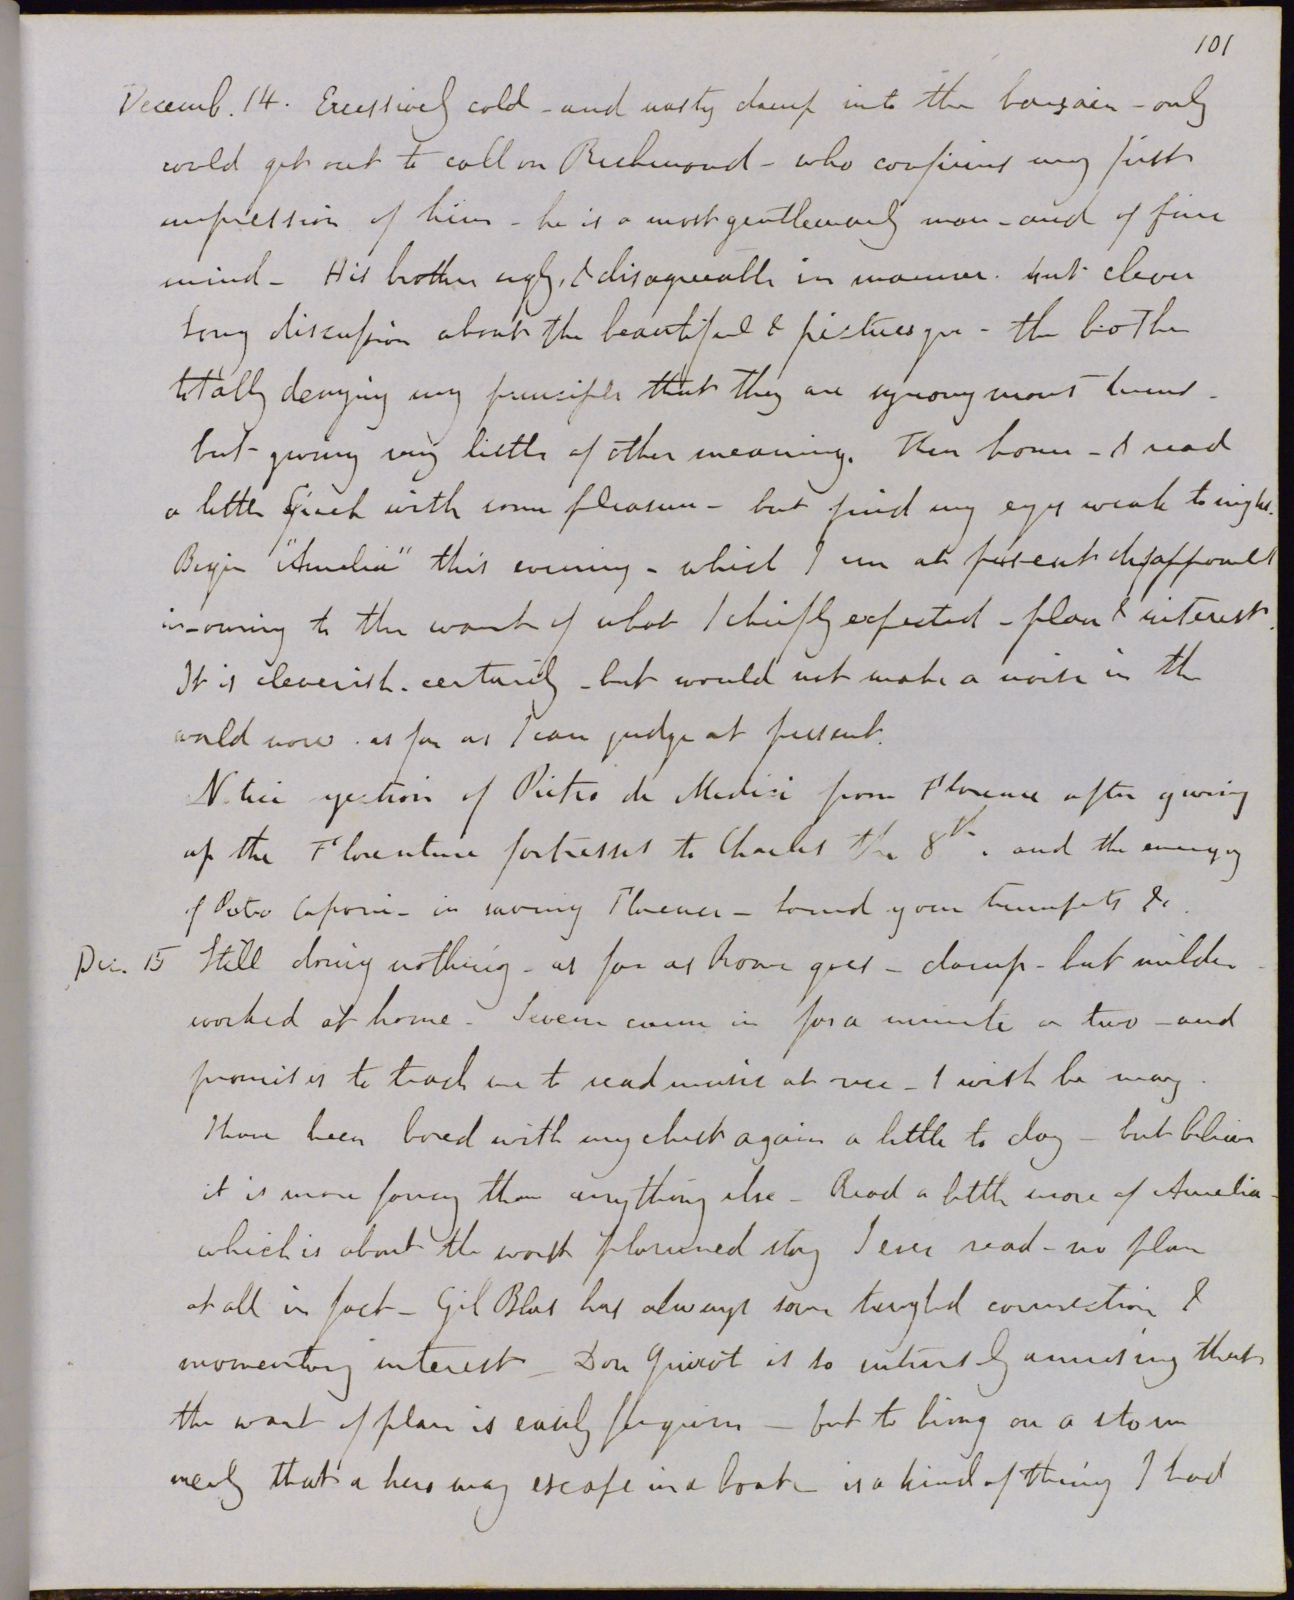 101
Decemb. 14. Excessively cold - and nasty damp into the bargain - only
could get out to call on Richmond - who confirms my first
impression of him - he is a most gentlemanly man - and of fine
mind - His brother ugly, & disagreeable in manner. but clever
Long discussion about the beautiful & picturesque - the brother
totally denying my principle that they are synonymous terms -
but giving very little of other meaning. Then home - I read
a little Greek with some pleasure - but find my eyes weak tonight.
Begin "Amelia" this evening - which I am at present disappointed
in - owing to the want of what I chiefly expected - plan & interest.
It is cleverish. certainly - but would not make a noise in the
world now. as far as I can judge at present.
Notice ejection of Pietro de Medici from Florence after giving
up the Florentine fortresses to Charles the 8th. and the energy
of Pietro Capponi - in saving Florence - Sound your trumpets &c.
Dec. 15 Still doing nothing - as far as Rome goes - damp - but milder -
worked at home - Severn came in for a minute or two - and
promises to teach me to read music at once - I wish he may.
I have been bored with my chest again a little to day - but believe
it is more fancy than anything else - Read a little more of Amelia -
which is about the worst planned story I ever read - no plan
at all in fact - Gil Blas has always some tangled connection &
momentary interest - Don Quixot is so intensely amusing that
the want of plan is easily forgiven - but to bring on a storm
merely that a hero may escape in a boat - is a kind of thing I had